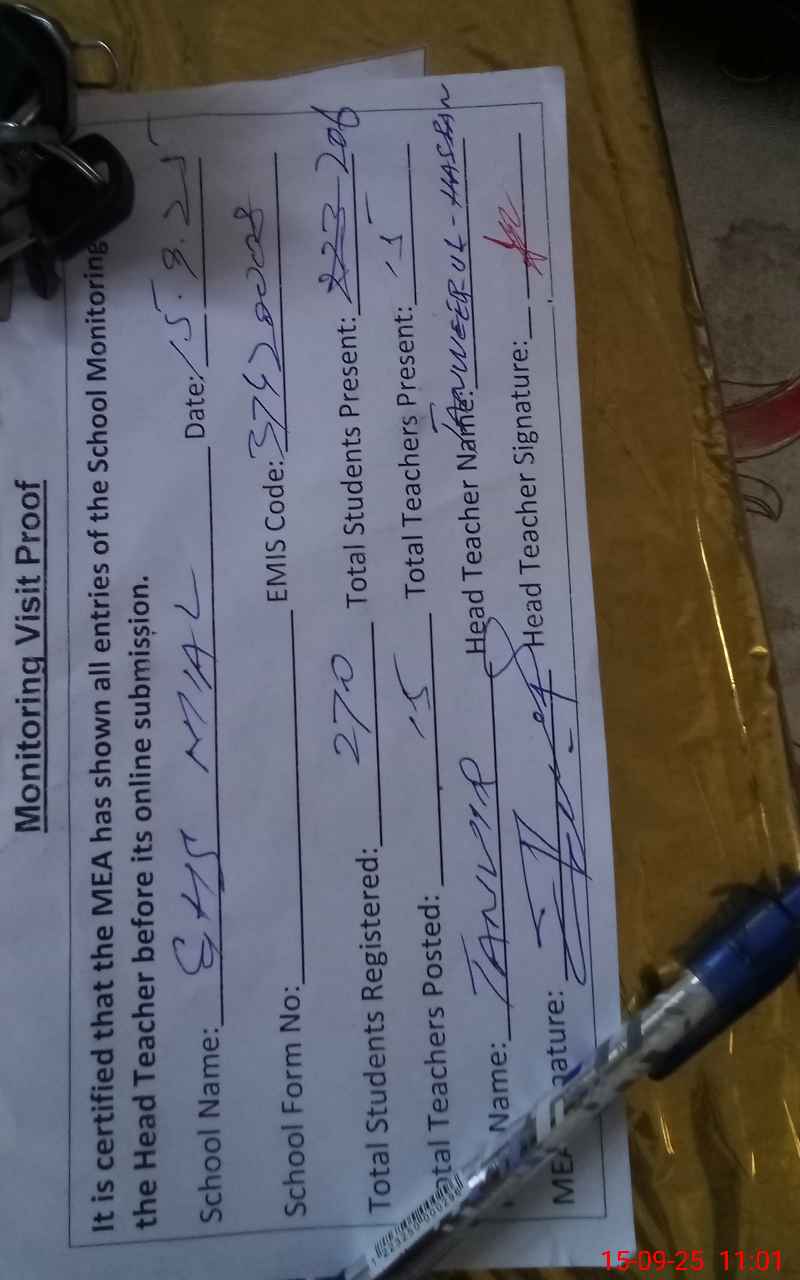 Monitoring Visit Proof
It is certified that the MEA has shown all entries of the School Monitoring
the Head Teacher before its online submission.
School Name: GHS MIAL Date: 15.9.25
School Form No: EMIS Code: 37420008
Total Students Registered: 270 Total Students Present: 223 206
tal Teachers Posted: 15 Total Teachers Present: 15
Name: TANVIR Head Teacher Name: TANVEER UL-HASSAN
MEA nature: Head Teacher Signature:
15-09-25 11:01